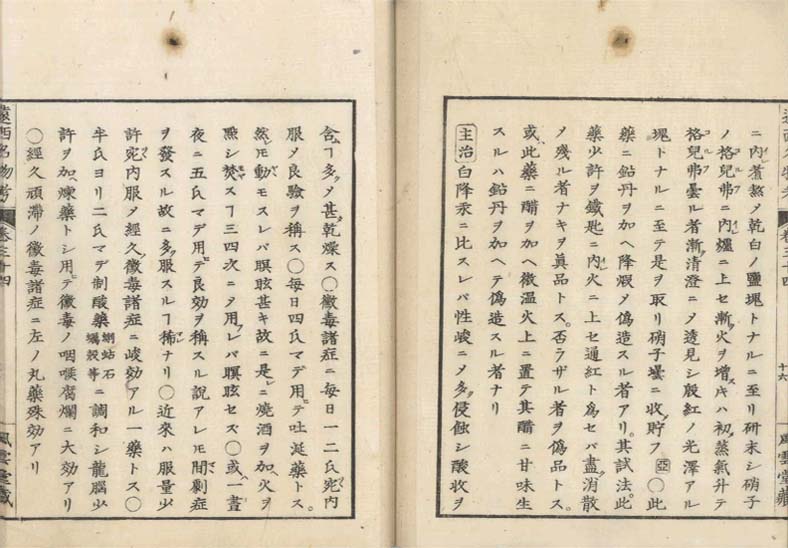 ニ内レ煮熬メ乾白ノ鹽塊トナルニ至リ研末シ硝子
ノ格兒弗ニ内レ爐ニ上セ漸ク火ヲ増スキハ初メ蒸氣升テ
格兒弗曇ル者漸ク清澄ニメ透見シ殷紅ノ光澤アル
塊トナルニ至テ是ヲ取リ硝子壜ニ收メ貯フ 亞 ○此
藥ニ鉛丹ヲ加ヘ降煆メ偽造スル者アリ其試法ハ此
藥少許ヲ鐵匙ニ内レ火ニ上セ通紅ト爲セバ盡ク消散
メ殘ル者ナキヲ眞品トス否ラザル者ヲ偽品トス
或ハ此藥ニ醋ヲ加ヘ微温火上ニ置テ其醋ニ甘味生
スルハ鉛丹ヲ加ヘテ偽造スル者ナリ
主治 白降汞ニ比スレバ性峻ニメ多ク侵蝕シ酸收ヲ
遠西名物考
卷三十四
十六
風雲堂藏
含ムヿ多メ甚乾燥ス○黴毒諸症ニ毎日一二氏宛内
服メ良驗ヲ稱ス○毎日四氏マデ用テ吐涎藥トス
然レモ動モスレバ瞑眩甚キ故ニ是レニ燒酒ヲ加ヘ火ヲ
點シ焚スヿ三四次ニメ用レバ瞑眩セス○或ハ一晝
夜ニ五氏マデ用テ良効ヲ稱スル說アレモ間劇症
ヲ發スル故ニ多ク服スルヿ稀ナリ○近來ハ服量少
許宛内服メ經久黴毒諸症ニ峻効アル一藥トス○
半氏ヨリ二氏マデ制酸藥 蜊蛄石 蠣殼等 ニ調和シ龍腦少
許ヲ加ヘ煉藥トシ用テ黴毒ノ咽喉腐爛ニ大効アリ
○經久頑滯ノ黴毒諸症ニ左ノ丸藥殊効アリ
遠西名物考
卷三十四
風雲堂藏